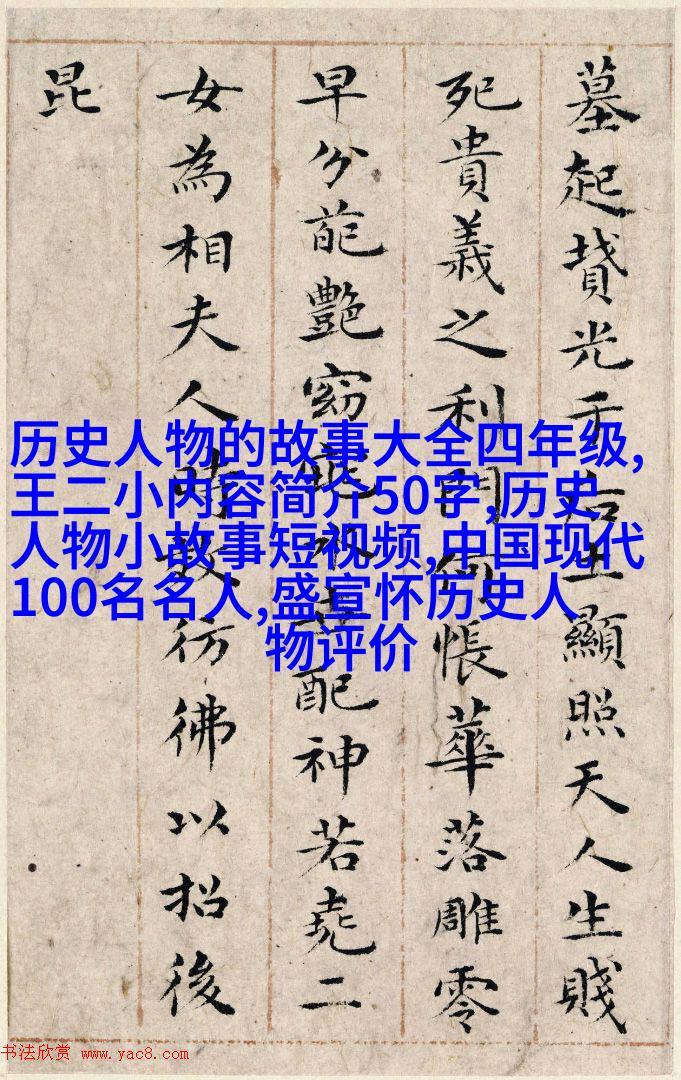 墓起墳光于后土顯照天人生賤
死貴義之利門何悵華落雕零
早分葩艷窈窕永世配神若堯二
女為相夫人時效彷彿以招後
昆
历史人物的故事大全四年级,
王二小内容简介50字,历史
人物小故事短视频,中国现代
100名名人,盛宣怀历史人
物评价
书法欣赏 www.yac8.com